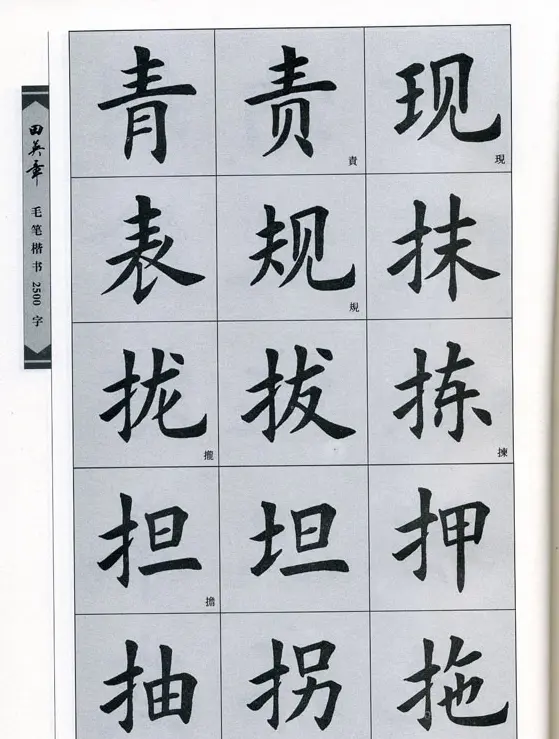 田英章 毛笔楷书2500字
青 责 責 现 現
表 规 規 抹
拢 攏 拔 拣 揀
担 擔 坦 押
抽 拐 拖